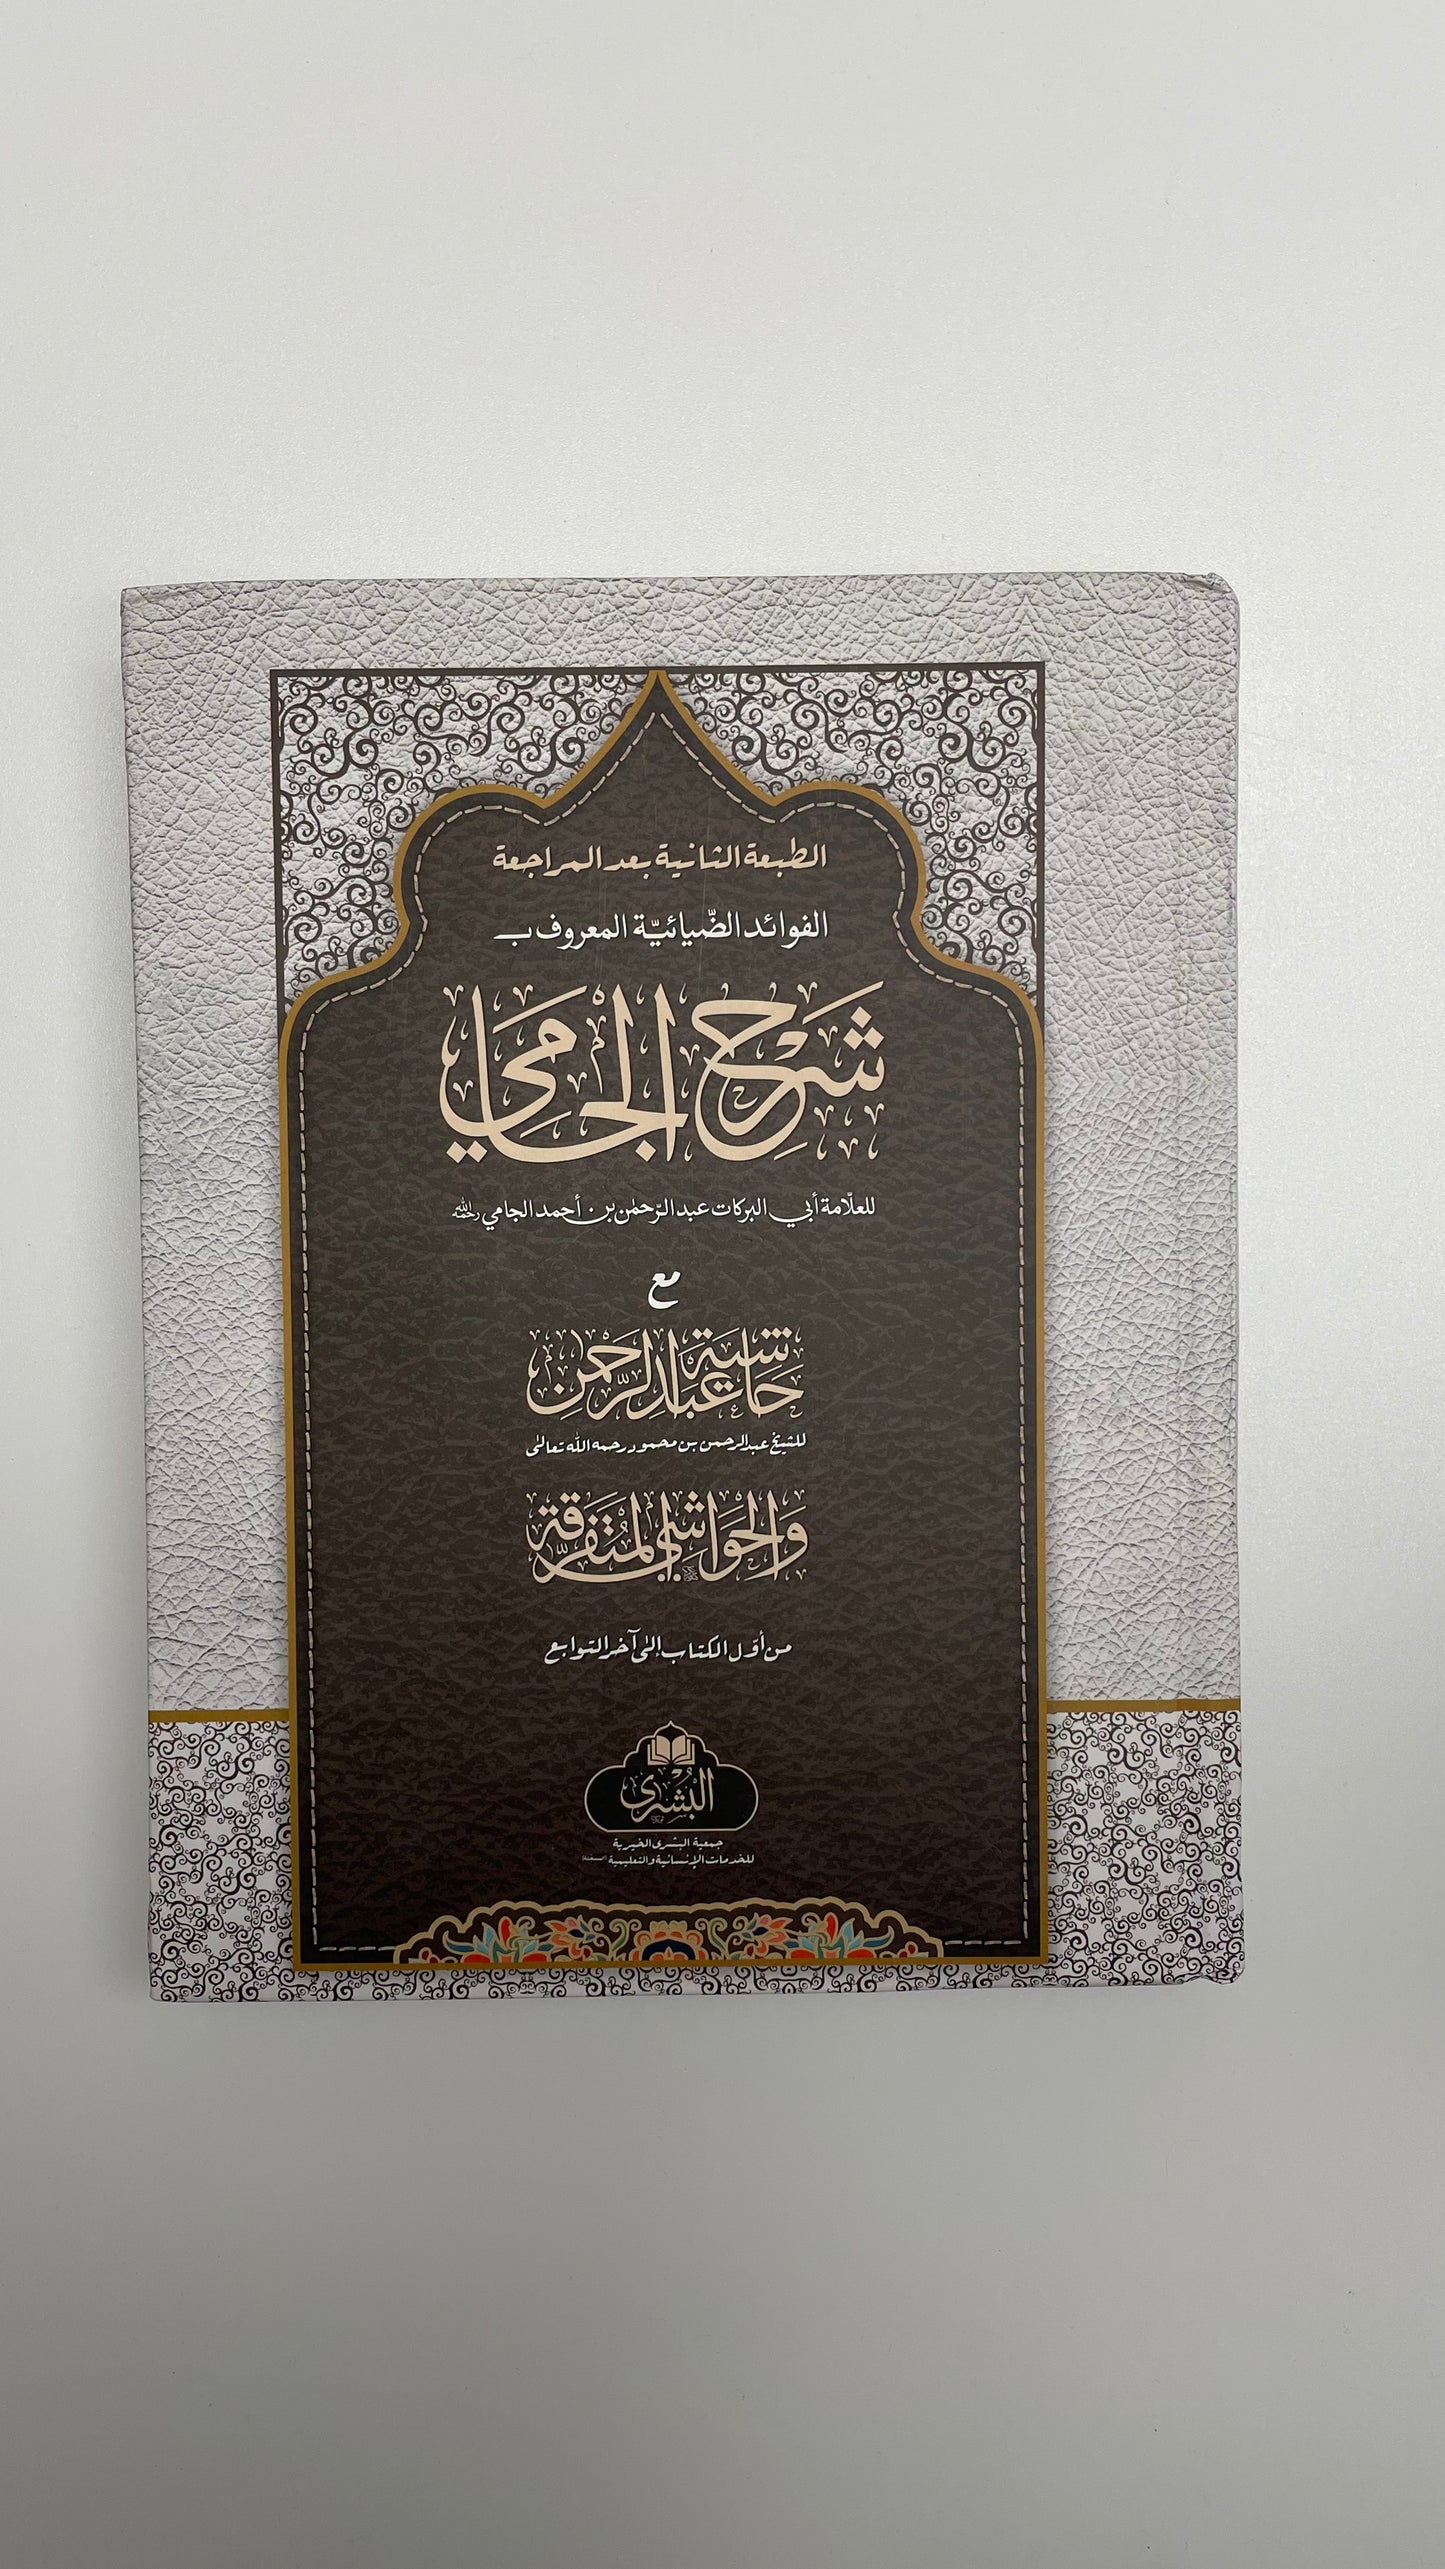 الطبعة الثانية بعد المراجعة
الفوائد الضّيائيّة المعروف بـ
شرح الجامي
للعلّامة أبي البركات عبد الرّحمٰن بن أحمد الجامي رحمه الله
مع
حَاشية عَبد الرَّحمٰن
للشيخ عبد الرحمن بن محمود رحمه الله تعالىٰ
وَالحَوَاشِي المُتَفَرِّقَة
من أوّل الكتاب إلىٰ آخر التوابع
البُشرى
جمعية البشرى الخيرية
للخدمات الإنسانية والتعليمية